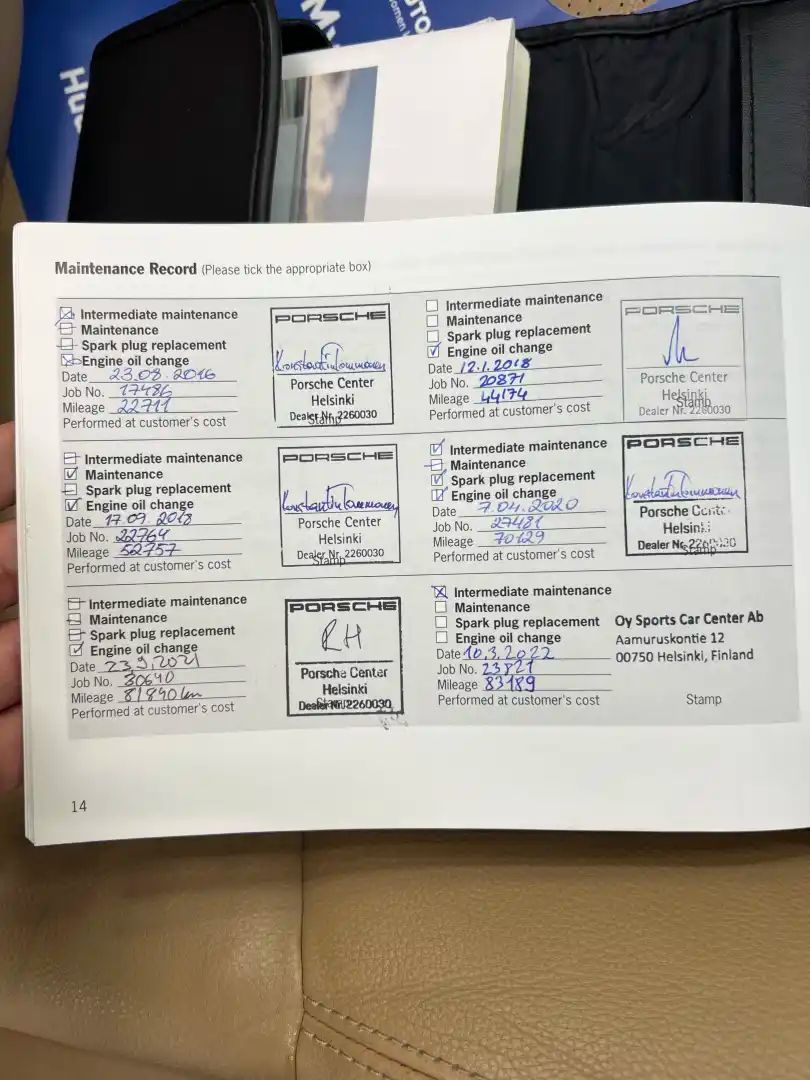 Maintenance Record (Please tick the appropriate box)
Intermediate maintenance
Maintenance
Spark plug replacement
Engine oil change
Date 23.08.2016
Job No. 17486
Mileage 22711
Performed at customer's cost
PORSCHE
Porsche Center
Helsinki
Dealer Nr. 2260030
Stamp
Intermediate maintenance
Maintenance
Spark plug replacement
Engine oil change
Date 12.1.2018
Job No. 20871
Mileage 44174
Performed at customer's cost
PORSCHE
Porsche Center
Helsinki
Stamp
Dealer Nr. 2260030
Intermediate maintenance
Maintenance
Spark plug replacement
Engine oil change
Date 17.09.2018
Job No. 22764
Mileage 52757
Performed at customer's cost
PORSCHE
Porsche Center
Helsinki
Dealer Nr. 2260030
Stamp
Intermediate maintenance
Maintenance
Spark plug replacement
Engine oil change
Date 7.04.2020
Job No. 27481
Mileage 70129
Performed at customer's cost
PORSCHE
Porsche Center
Helsinki
Dealer Nr. 2260030
Stamp
Intermediate maintenance
Maintenance
Spark plug replacement
Engine oil change
Date 23.9.2021
Job No. 30640
Mileage 81890 km
Performed at customer's cost
PORSCHE
RH
Porsche Center
Helsinki
Dealer Nr. 2260030
Stamp
Intermediate maintenance
Maintenance
Spark plug replacement
Engine oil change
Date 10.3.2022
Job No. 23821
Mileage 83189
Performed at customer's cost
Oy Sports Car Center Ab
Aamuruskontie 12
00750 Helsinki, Finland
Stamp
14